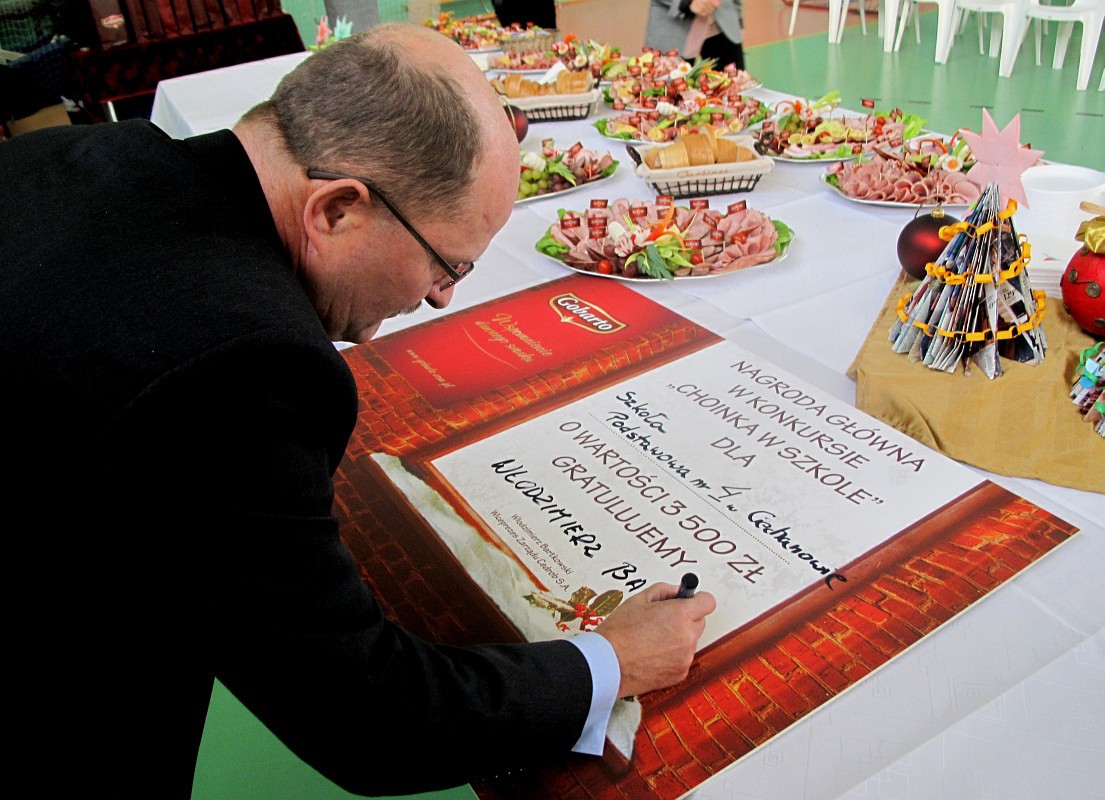 Gobarto
Wspomnienie
dawnego smaku
NAGRODA GŁÓWNA
W KONKURSIE
„CHOINKA W SZKOLE”
DLA
Szkoła
Podstawowa nr 4 w Ciechanowie
O WARTOŚCI 3 500 ZŁ
GRATULUJEMY
WŁODZIMIERZ BA
Włodzimierz Bartkowski
Wiceprezes Zarządu Cedrob S.A.